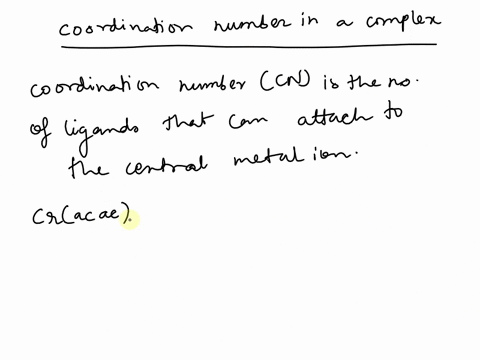 coordination number in a complex
coordination number (CN) is the no.
of ligands that can attach to
the central metal ion.
Cr(acac)